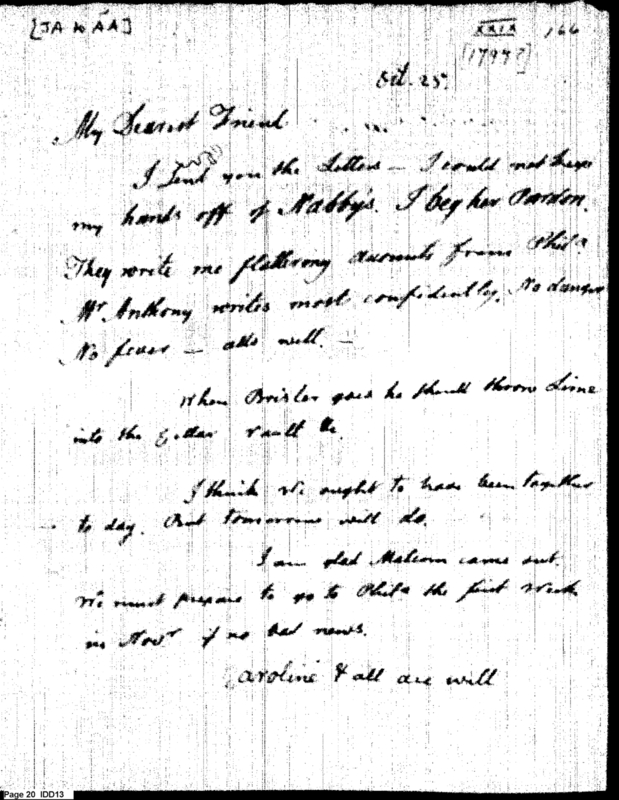 [JA to AA]
XXIX 166
[1797?]
Oct. 25.
My Dearest Friend
I send you the Letters — I could not keep
my hands off of Nabby's. I beg her Pardon.
They write me flattering accounts from Phila
Mr Anthony writes most confidently. No danger
No fever — alls well. —
When Brisler goes he should throw Lime
into the Cellar Vault &c.
I think We ought to have been together
to day. But tomorrow will do.
I am glad Malcom came out.
We must prepare to go to Phila the first Week
in Novr if no bad news.
Caroline & all are well
Page 20 IDD13